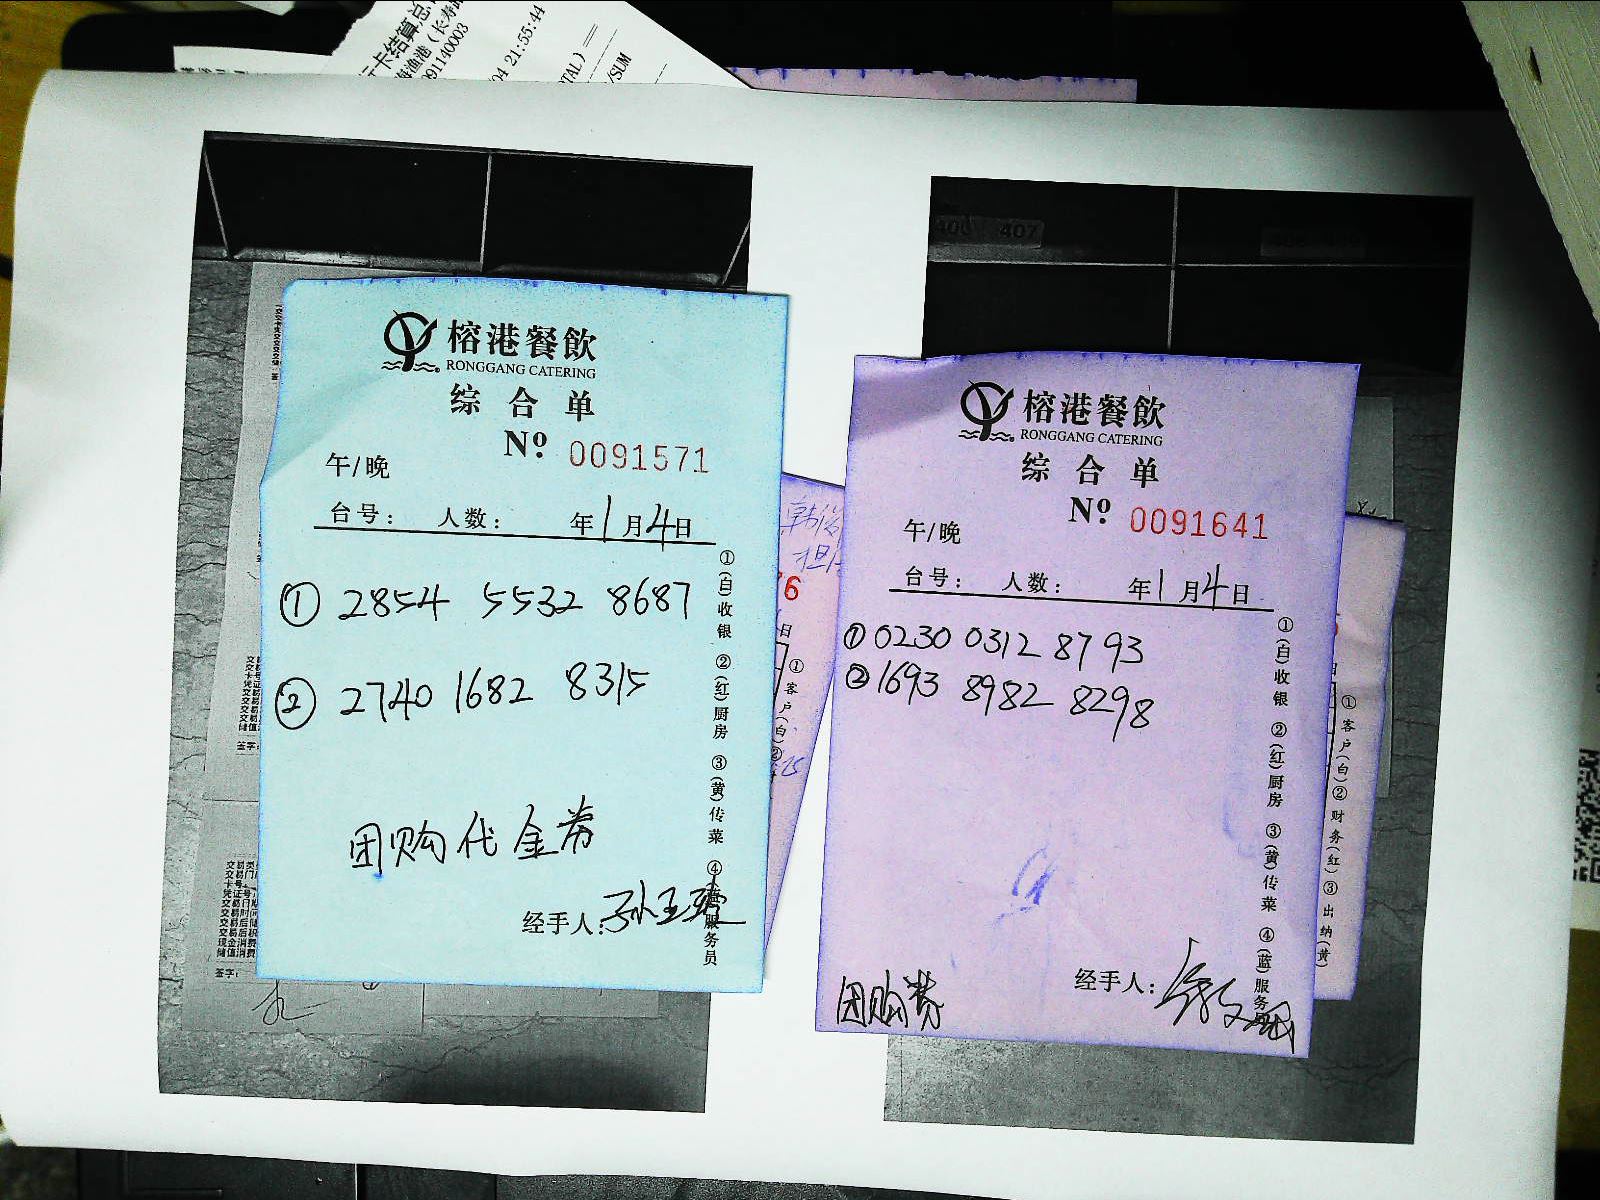 行卡结算总
海渔港（长寿路
091140003
04 21:55:44
TAL)
/SUM
407
榕港餐飲
RONGGANG CATERING
综合单
Nº 0091571
午/晚
台号： 人数： 年1月4日
① 2854 5532 8687
② 2740 1682 8315
团购代金券
经手人：
①(白)收银 ②(红)厨房 ③(黄)传菜 ④(蓝)服务员
榕港餐飲
RONGGANG CATERING
综合单
Nº 0091641
午/晚
台号： 人数： 年1月4日
① 0230 0312 8793
② 1693 8982 8298
团购券
经手人：
①(白)收银 ②(红)厨房 ③(黄)传菜 ④(蓝)服务员
①客户(白)②
①客户(白)②财务(红)③出纳(黄)
签字:
签字: